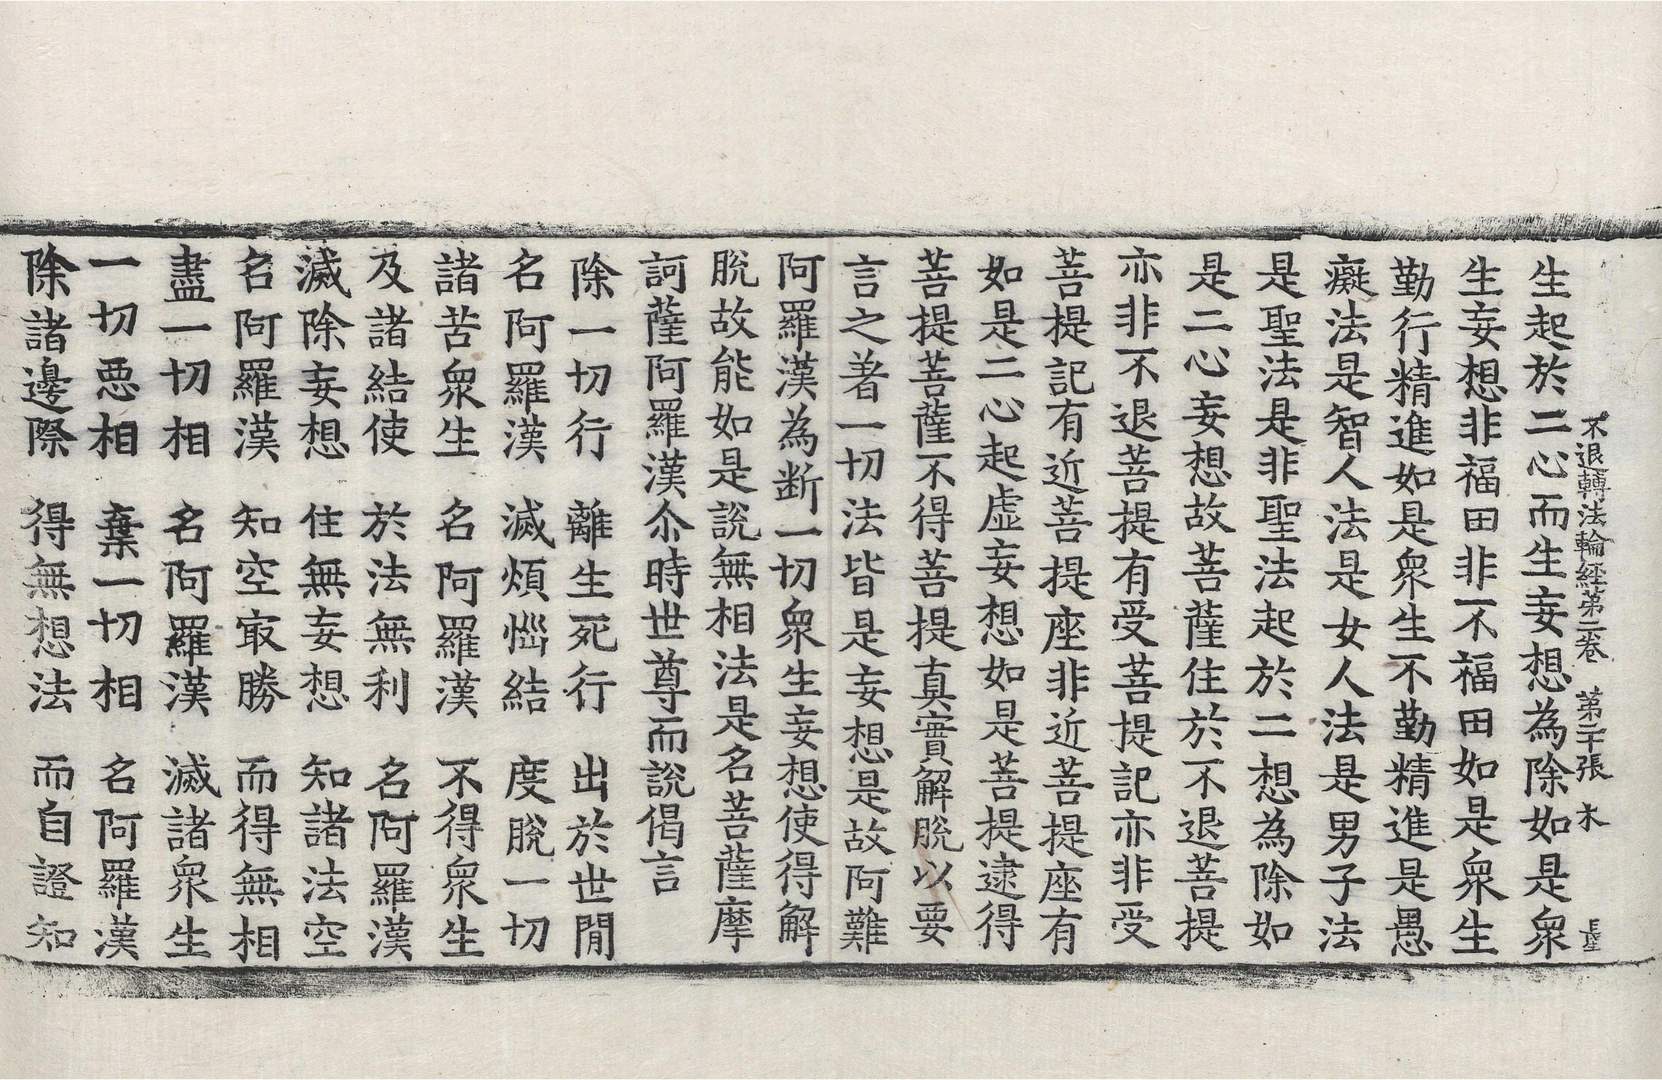 不退轉法輪經第二卷　第二十張　木
生起於二心而生妄想為除如是衆
生妄想非福田非不福田如是衆生
勤行精進如是衆生不勤精進是愚
癡法是智人法是女人法是男子法
是聖法是非聖法起於二想為除如
是二心妄想故菩薩住於不退菩提
亦非不退菩提有受菩提記亦非受
菩提記有近菩提座非近菩提座有
如是二心起虛妄想如是菩提逮得
菩提菩薩不得菩提真實解脫以要
言之著一切法皆是妄想是故阿難
阿羅漢為斷一切衆生妄想使得解
脫故能如是說無相法是名菩薩摩
訶薩阿羅漢尒時世尊而說偈言
除一切行　離生死行　出於世間
名阿羅漢　滅煩惱結　度脫一切
諸苦衆生　名阿羅漢　不得衆生
及諸結使　於法無利　名阿羅漢
滅除妄想　住無妄想　知諸法空
名阿羅漢　知空㝡勝　而得無相
盡一切相　名阿羅漢　滅諸衆生
一切惡相　棄一切相　名阿羅漢
除諸邊際　得無想法　而自證知